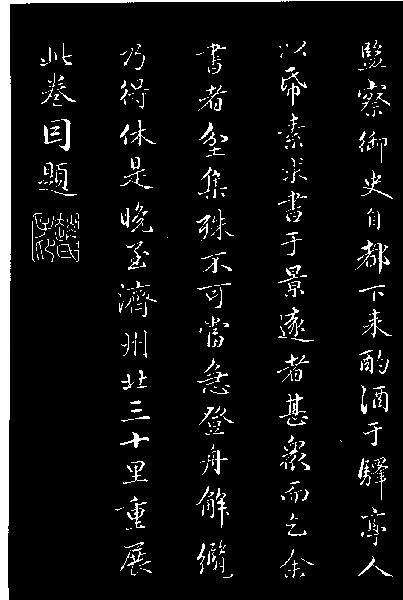 監察御史自都下来酌酒于驛亭人
以帋素求書于景遠者甚衆而乞余
書者坌集殊不可當急登舟解纜
乃得休是晚至濟州北三十里重展
此卷因題
趙氏子昂